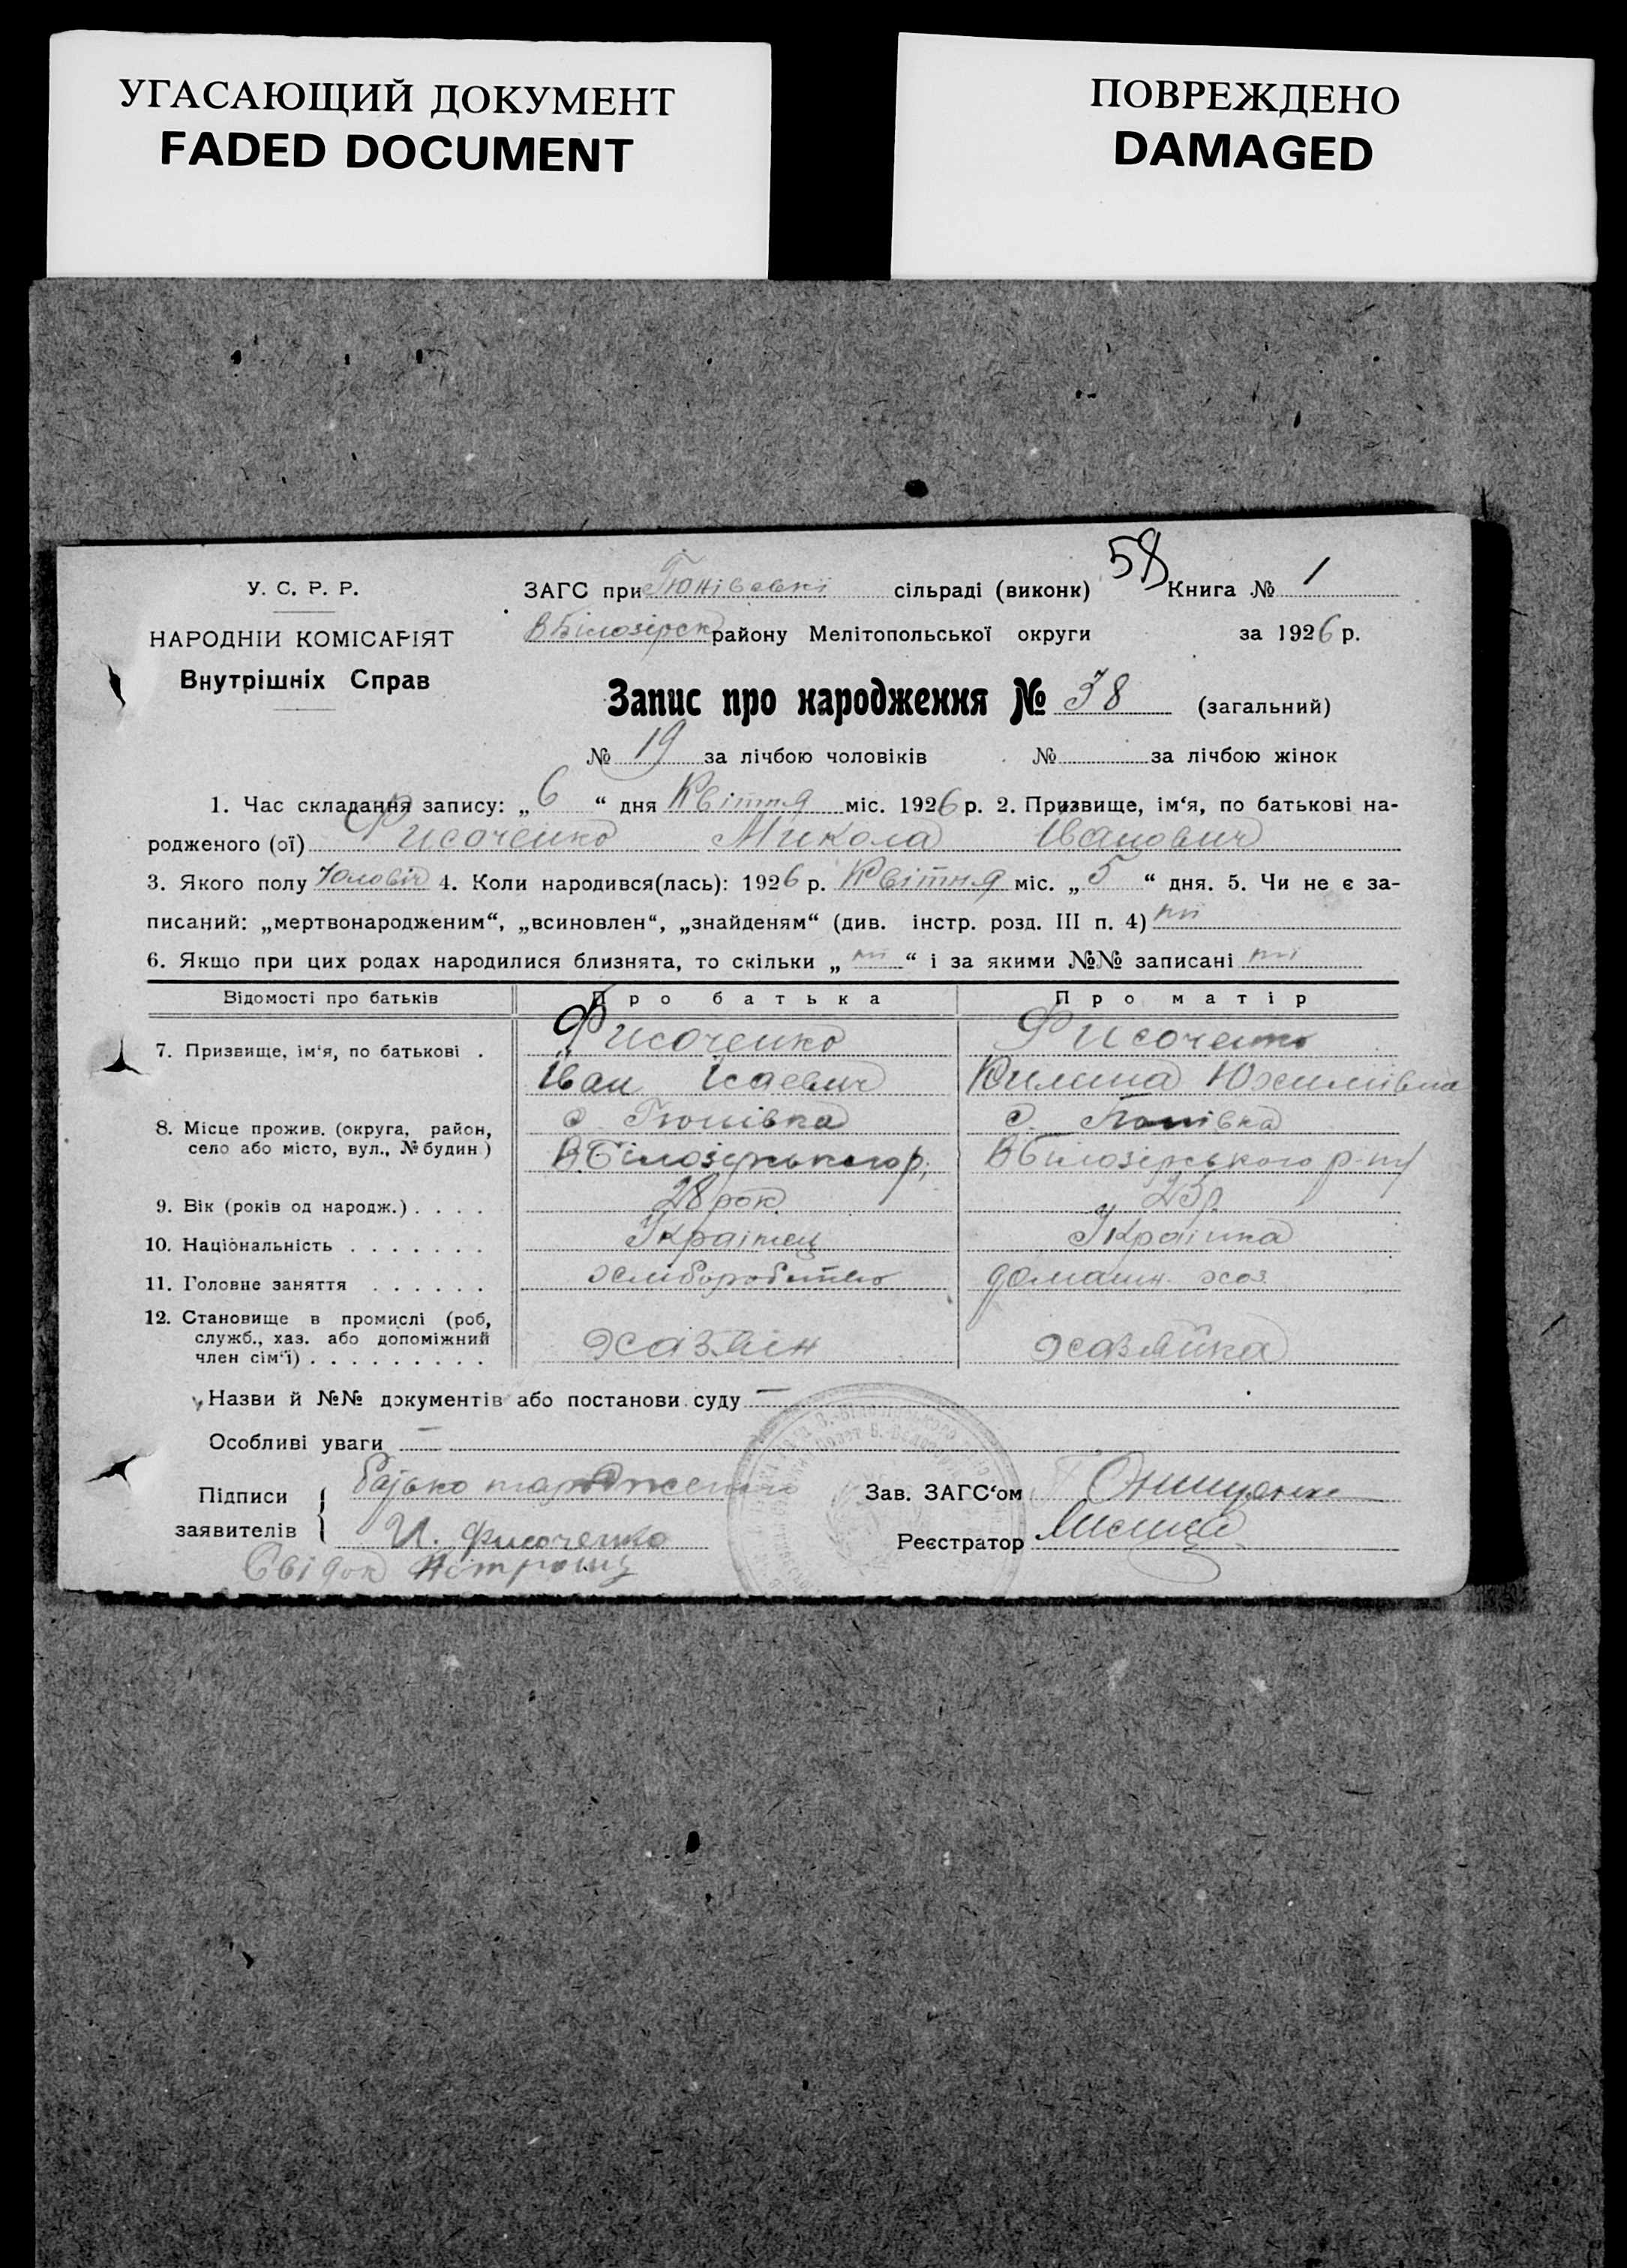 УГАСАЮЩИЙ ДОКУМЕНТ
FADED DOCUMENT
ПОВРЕЖДЕНО
DAMAGED
58
У. С. Р. Р.
ЗАГС при Гюнівській сільраді (виконк) Книга № 1
НАРОДНІЙ КОМІСАРІЯТ
В Білозірськ району Мелітопольської округи за 1926 р.
Внутрішніх Справ
Запис про народження № 38 (загальний)
№ 19 за лічбою чоловіків № за лічбою жінок
1. Час складання запису: „6“ дня Квітня міс. 1926 р. 2. Призвище, ім‘я, по батькові на-
родженого (ої) Фисоченко Микола Іванович
3. Якого полу Чоловіч 4. Коли народився(лась): 1926 р. Квітня міс. „5“ дня. 5. Чи не є за-
писаний: „мертвонародженим“, „всиновлен“, „знайденям“ (див. інстр. розд. III п. 4) ні
6. Якщо при цих родах народилися близнята, то скільки „ні“ і за якими №№ записані ні
Відомості про батьків Про батька Про матір
7. Призвище, ім‘я, по батькові . Фисоченко Фисоченко
Іван Ісаевич Килина Юхимівна
8. Місце прожив. (округа, район, с. Гюнівка с. Гюнівка
село або місто, вул., № будин) В Білозірського р. В Білозірського р-ну
9. Вік (років од народж.) . . . . 28 рок 23 р
10. Національність . . . . . . . Українец Українка
11. Головне заняття . . . . . . хліборобство домашн. хоз.
12. Становище в промислі (роб,
служб., хаз. або допоміжний хазяін хазяйка
член сім‘ї) . . . . . . . . .
Назви й №№ документів або постанови суду —
Особливі уваги —
Підписи Батько народженого Зав. ЗАГС‘ом Онищенко
заявителів И. Фисоченко Реєстратор
Свідок